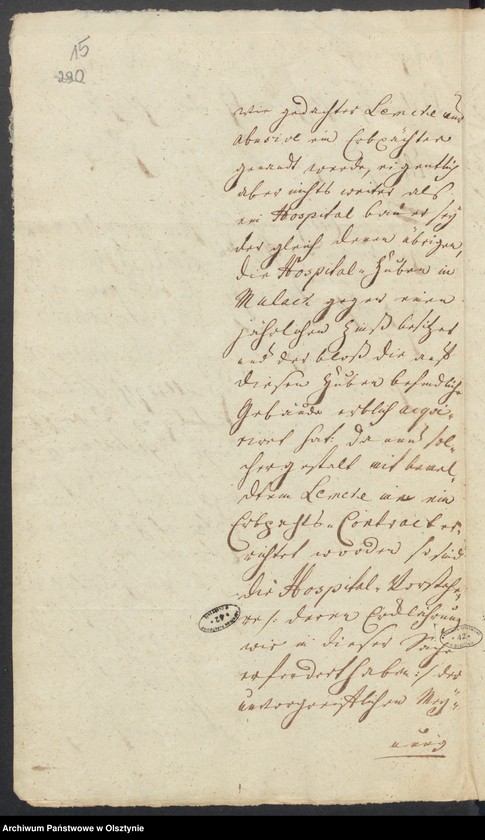 15
220
wie gedachter Lemcke nur
abusive ein Erbpächter
genandt werde, eigentlich
aber nichts weiter als
ein Hospital bauer sey
der gleich denen übrigen,
die Hospital-Huben in
Mulack gegen einen
jährlichen Zinß besitzet
und der bloß die auf
diesen Huben befindliche
Gebäude erblich acqui-
riret hat: da nun sol-
chergestalt mit bemel-
detem Lemcke ein
Erbpachts-Contract er-
richtet worden so sind
die Hospital-Vorstehe-
re /: deren Erklährung
wir in dieser Sache
erfordert haben :/ der
unvorgreiflichen Mey-
nung
42
42
Archiwum Państwowe w Olsztynie